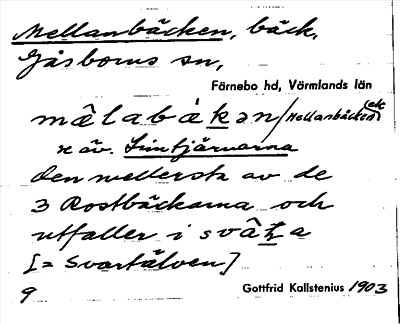 Mellanbäcken, bäck,
Gåsborns sn,
Färnebo hd, Värmlands län
mâlabák̲ən / Mellanbäcken (ek
av. Limtjärnarna
den mellersta av de
3 Rostbäckarna och
utfaller i svât̲a
[= Svartälven]
9 Gottfrid Kallstenius 1903